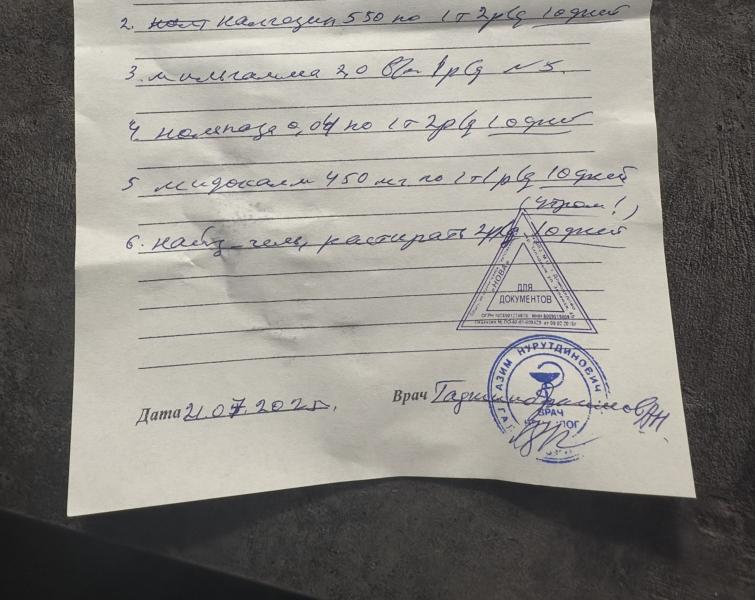 2. налгезин 550 по 1т 2р/д 10 дней
3. мильгамма 2,0 в/м 1р/д №5.
4. нольпаза 0,04 по 1т 2р/д 10 дней
5 мидокалм 450 мг по 1т 1р/д 10 дней
(утром!)
6. гель, растирать 2р/д. 10 дней
НОВА
ДЛЯ
ДОКУМЕНТОВ
АЗИМ НУРУТДИНОВИЧ
ВРАЧ
Дата 21.07.2025г. Врач